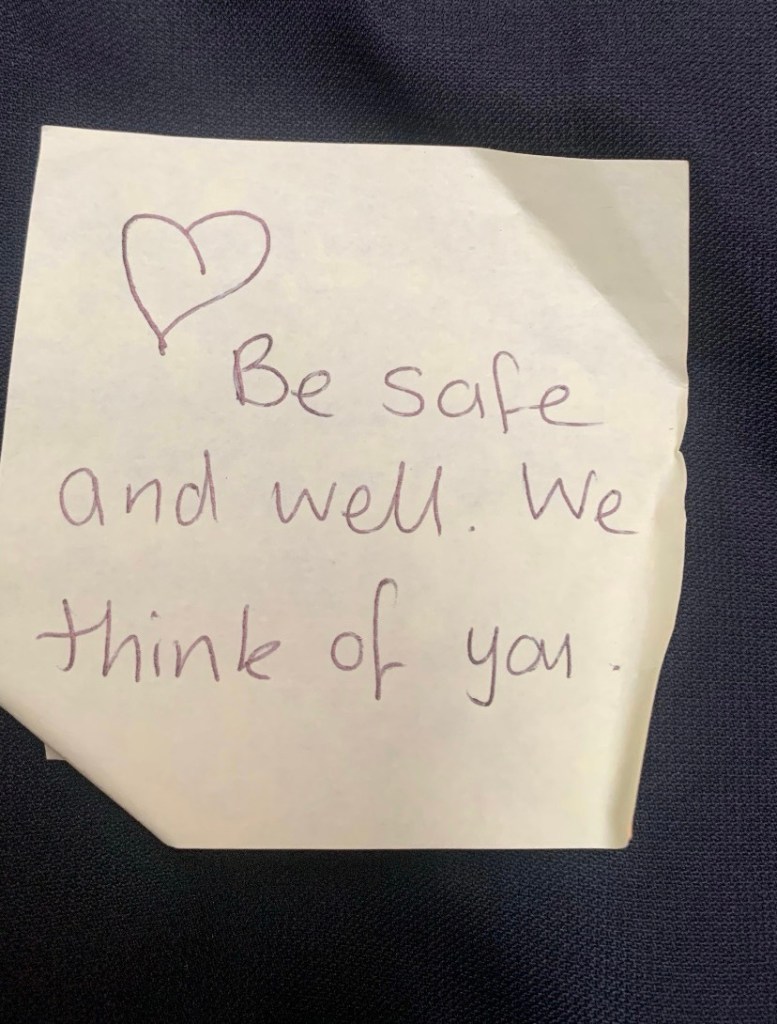 Be safe
and well. We
think of you.